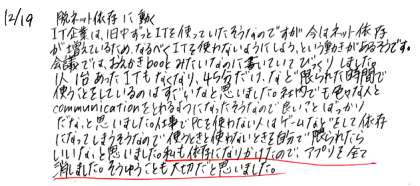 12/19 脱ネット依存に動く
IT企業は、1日中ずっとITを使っていたそうなのですが今はネット依存
が増えているため、なるべくITを使わないようにしよう、という動きがあるそうです。
会議では、おえかきbookみたいなのに書いていてびっくりしました。
1人1台あったITもなくなり、45分だけ、など限られた時間で
使うことをしているのはすごいなと思いました。社内でも色々な人と
communicationをとれるようになったそうなので良いことばっかり
だな、と思いました。仕事でPCを使わない人はゲームなどをして依存
になってしまうそうなので使うときと使わないときを自分で限られたら
いいな、と思いました。私も依存になりかけたので、アプリを全て
消しました。そうゆうことも大切だと思いました。